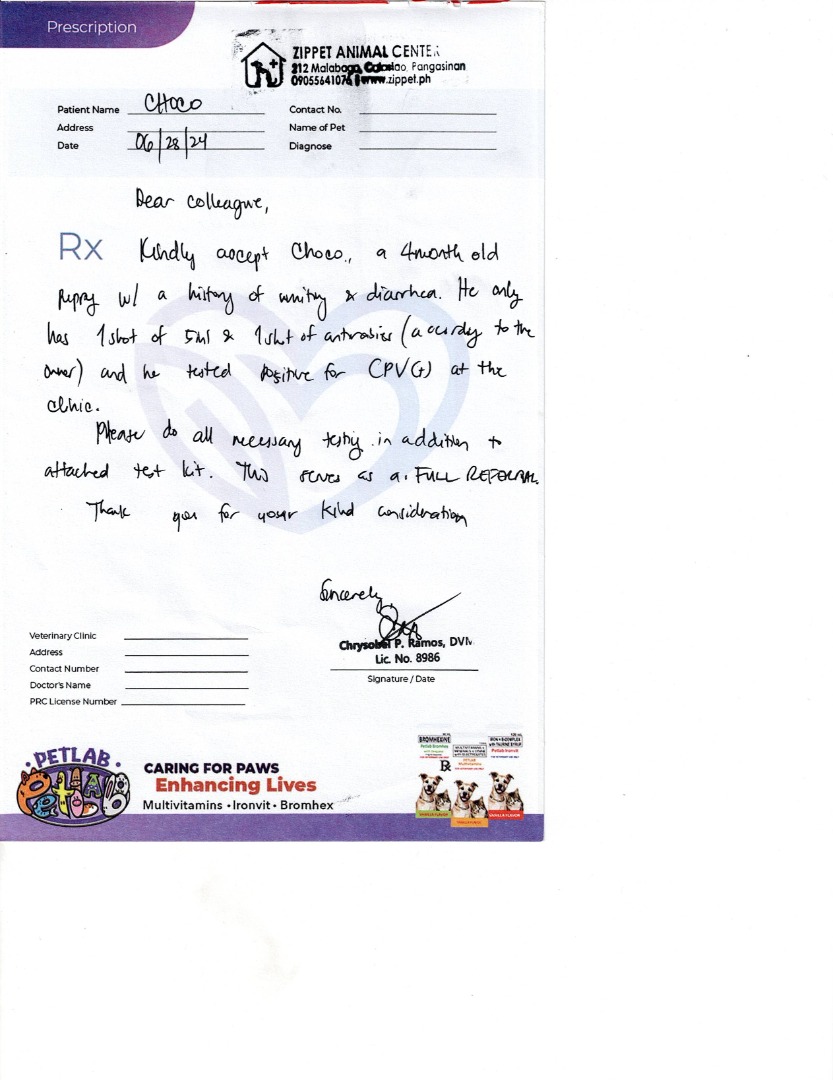 Prescription
ZIPPET ANIMAL CENTER
212 Malabago, Calasiao, Pangasinan
09055641076 www.zippet.ph
Patient Name CHOCO Contact No.
Address Name of Pet
Date 06/28/24 Diagnose
Dear colleague,
Rx Kindly accept Choco, a 4 month old
puppy w/ a history of vomiting & diarrhea. He only
has 1 shot of 5 in 1 & 1 shot of antirabies (according to the
owner) and he tested positive for CPV(+) at the
clinic.
Please do all necessary testing in addition to
attached test kit. This serves as a FULL REFERRAL.
Thank you for your kind consideration
Sincerely,
Chrysobel P. Ramos, DVM
Lic. No. 8986
Signature / Date
Veterinary Clinic
Address
Contact Number
Doctor's Name
PRC License Number
PETLAB
petlab
CARING FOR PAWS
Enhancing Lives
Multivitamins • Ironvit • Bromhex
BROMHEXINE
Rx